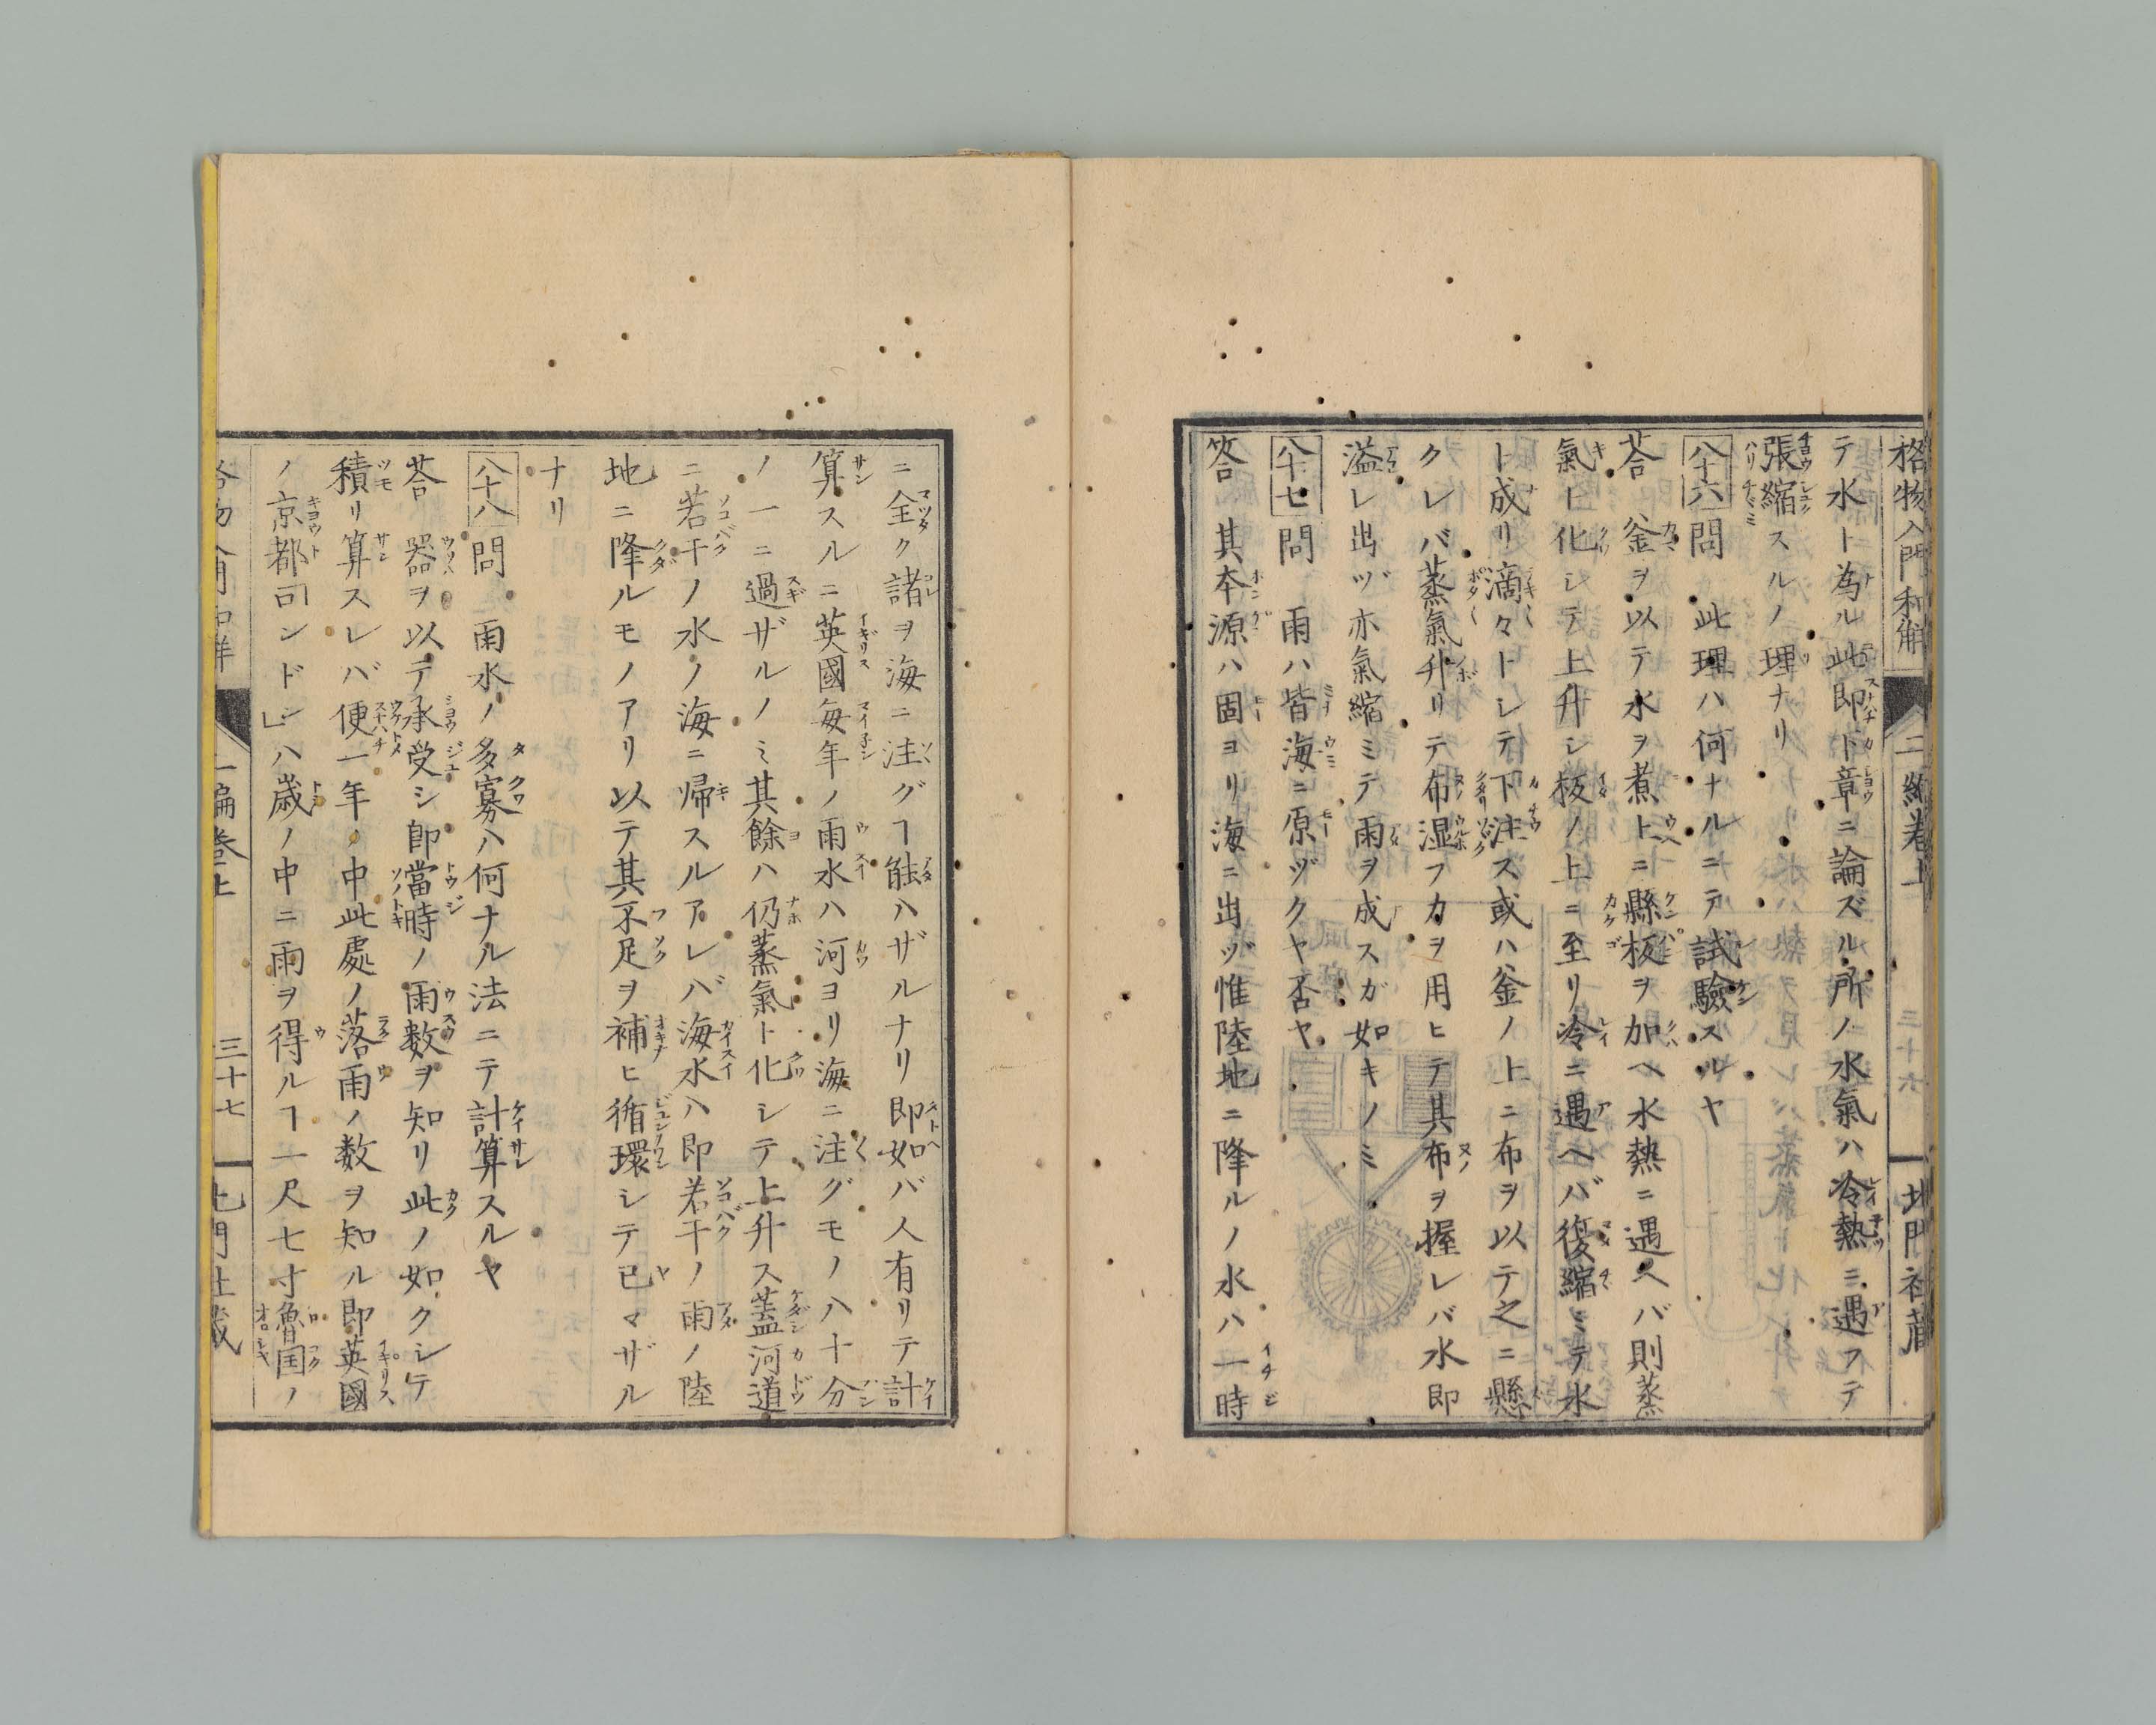 格物入門和解 二編巻上 三十六 北門社蔵
テ水ト為ル此即下章ニ論ズル所ノ水氣ハ冷熱ニ遇フテ
張縮スルノ理ナリ
八十六 問 此理ハ何ナルニテ試驗スルヤ
荅 釜ヲ以テ水ヲ煮上ニ縣板ヲ加ヘ水熱ニ遇ヘバ則蒸
氣ト化シテ上升シ板ノ上ニ至リ冷ニ遇ヘバ復縮ミテ水
ト成リ滴々トシテ下注ス或ハ釜ノ上ニ布ヲ以テ之ニ懸
クレバ蒸氣升リテ布湿フカヲ用ヒテ其布ヲ握レバ水即
溢レ出ヅ亦氣縮ミテ雨ヲ成スガ如キノミ
八十七 問 雨ハ皆海ニ原ヅクヤ否ヤ
答 其本源ハ固ヨリ海ニ出ヅ惟陸地ニ降ルノ水ハ一時
ニ全ク諸ヲ海ニ注グヿ能ハザルナリ即如バ人有リテ計
算スルニ英國毎年ノ雨水ハ河ヨリ海ニ注グモノハ十分
ノ一ニ過ザルノミ其餘ハ仍蒸氣ト化シテ上升ス蓋河道
ニ若干ノ水ノ海ニ帰スルアレバ海水ハ即若干ノ雨ノ陸
地ニ降ルモノアリ以テ其不足ヲ補ヒ循環シテ已マザル
ナリ
八十八 問 雨水ノ多寡ハ何ナル法ニテ計算スルヤ
荅 器ヲ以テ承受シ即當時ノ雨数ヲ知リ此ノ如クシテ
積リ算スレバ便一年ノ中此處ノ落雨ノ数ヲ知ル即英國
ノ京都ロンドン」ハ歳ノ中ニ雨ヲ得ルヿ一尺七寸魯国ノ
格物入門和解 二編巻上 三十七 北門社蔵